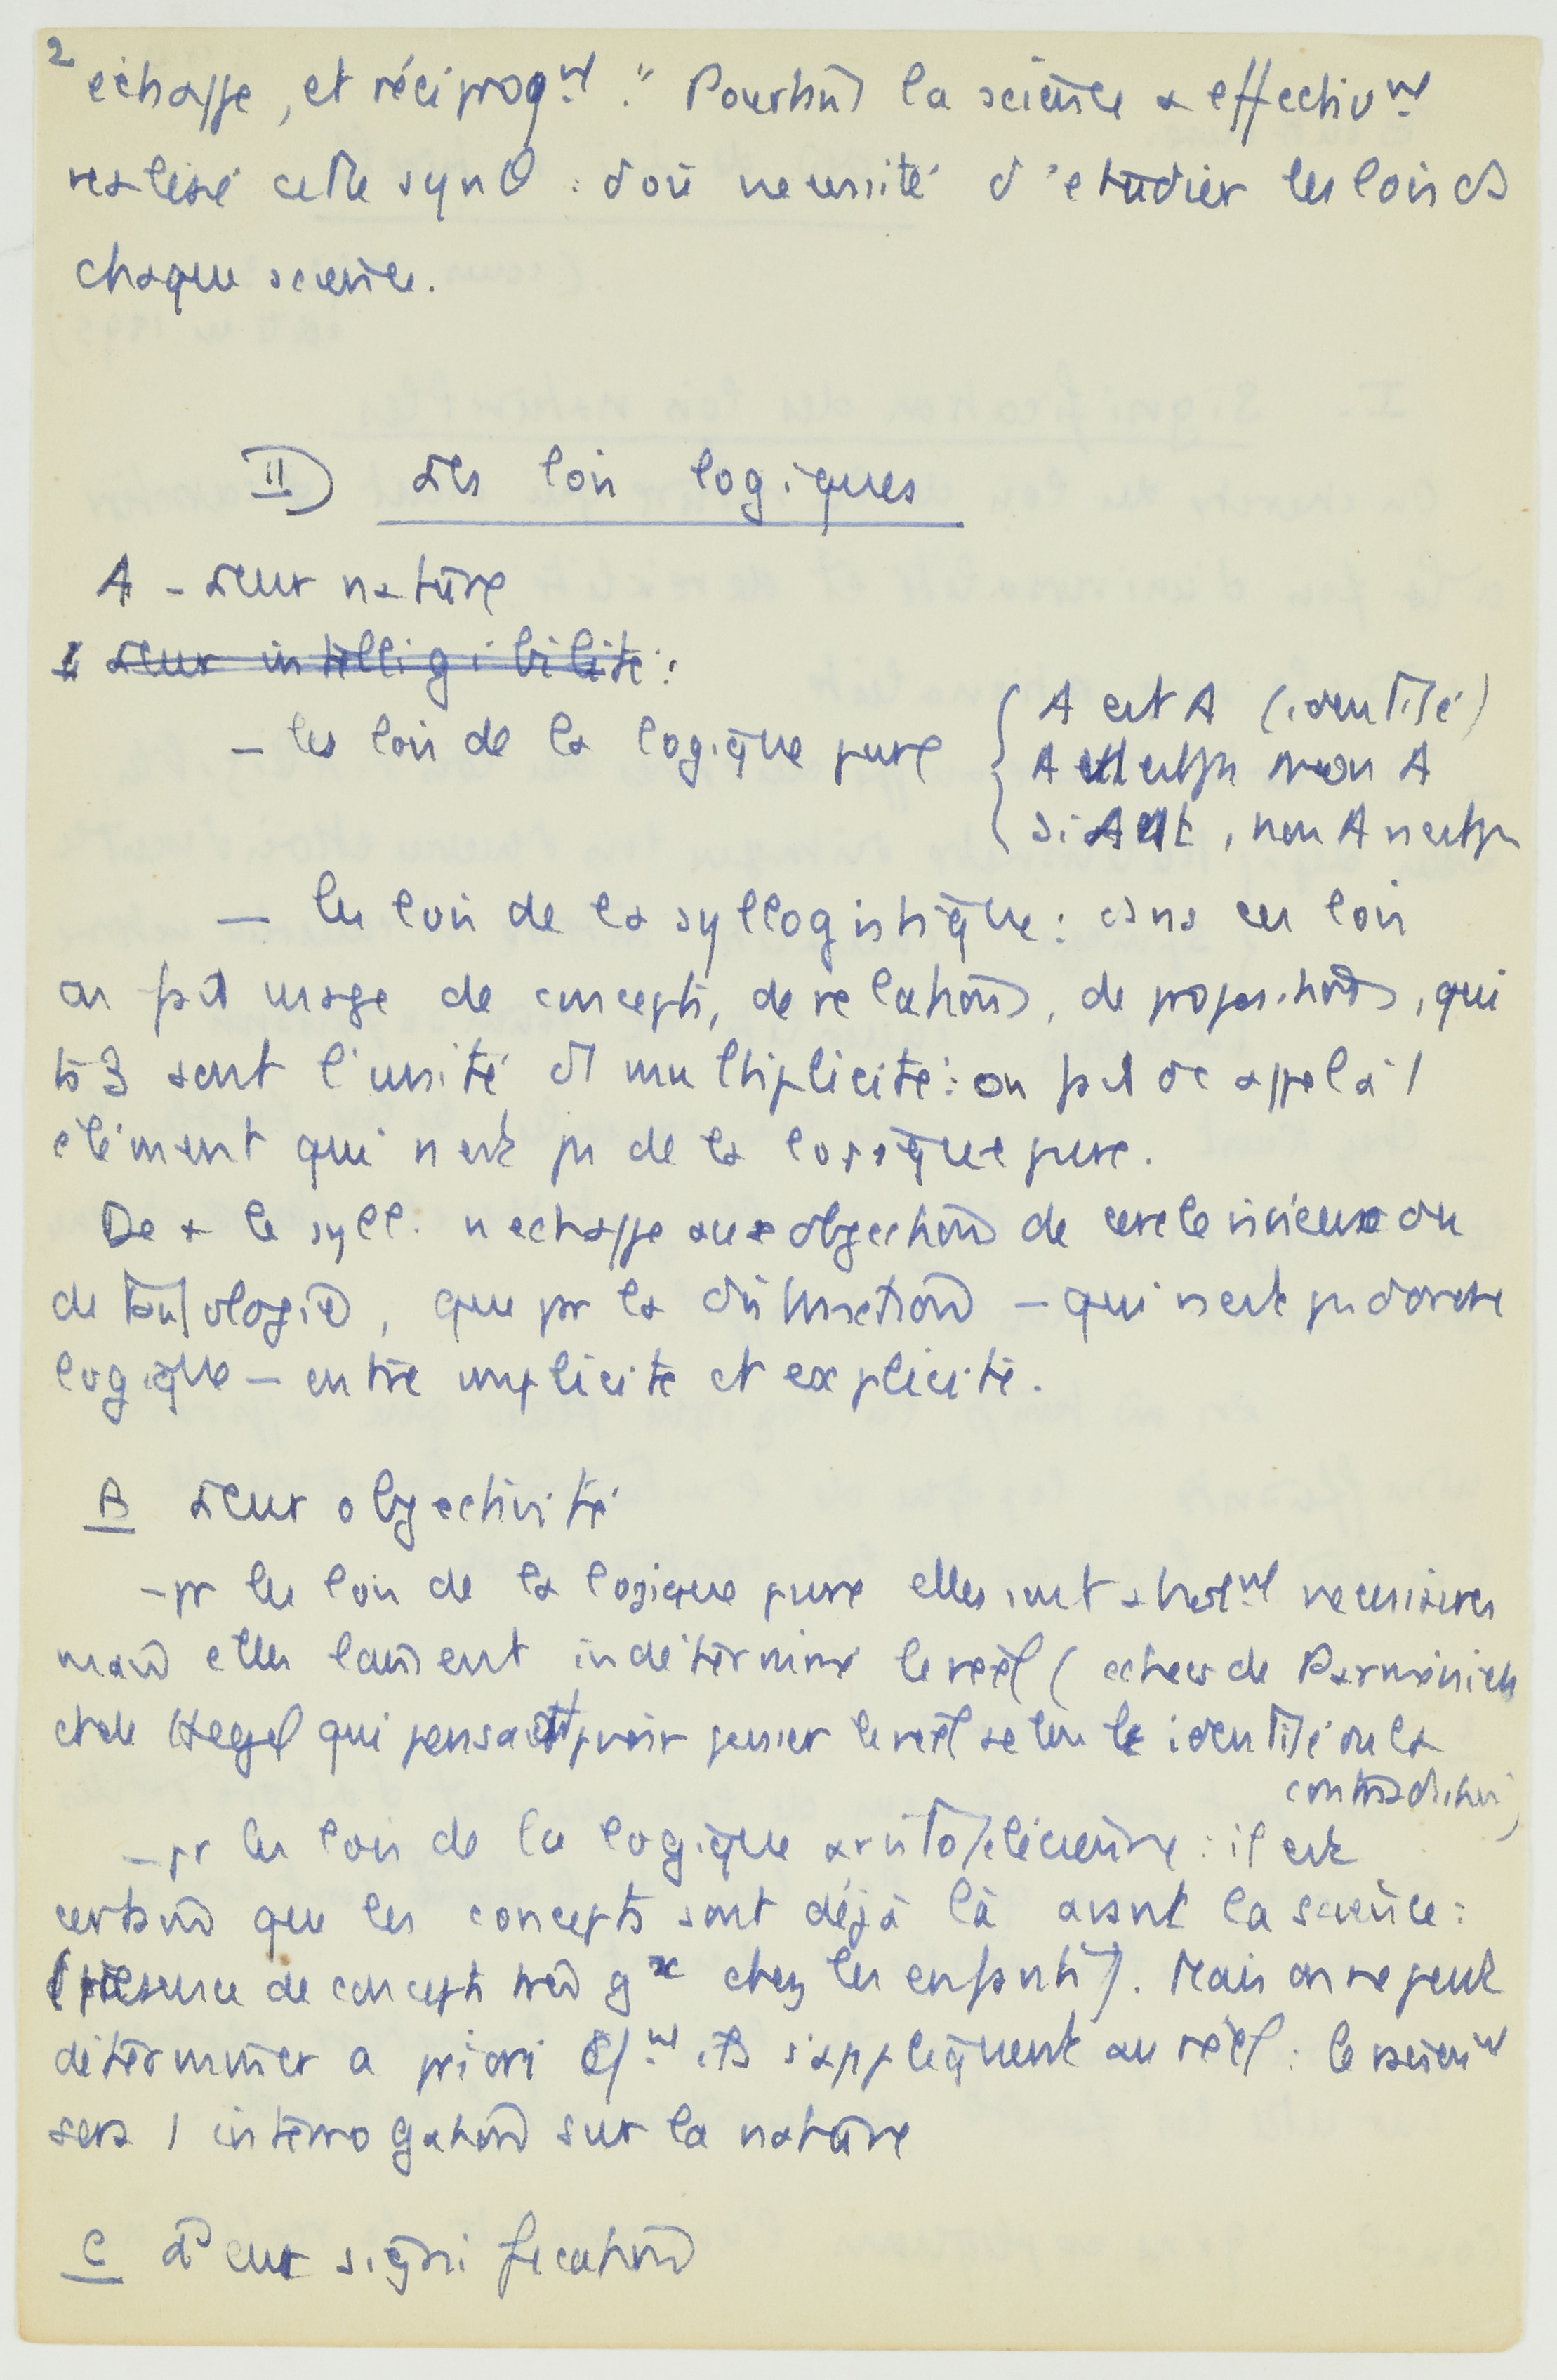 2
échappe, et réciproqnt." Pourtant la science a effectivnt
réalisé cette synθ : d'où nécessité d'étudier les lois ds
chaque science.
II) Les lois logiques
A - Leur nature
Leur intelligibilité :
- les lois de la logique pure { A est A (identité)
A n'est pas non A
si A est, non A n'est pas
- les lois de la syllogistique : dans ces lois
on fait usage de concepts, de relations, de propositions, qui
ts 3 sont l'unité d'1 multiplicité : on fait dc appel à 1
élément qui n'est pas de la logique pure.
De + le syll. n'échappe aux objections de cercle vicieux ou
de tautologie, que par la distinction - qui n'est pas d'ordre
logique - entre implicite et explicite.
B Leur objectivité
- pr les lois de la logique pure elles sont absolnt nécessaires
mais elles laissent indéterminé le réel (échec de Parménide
et de Hegel qui pensait pvoir penser le réel selon le identité ou la
contradiction)
- pr les lois de la logique aristotélicienne : il est
certain que les concepts sont déjà là avant la science :
(présence de concepts très gx chez les enfants). Mais on ne peut
déterminer a priori cɫnt ils s'appliquent au réel : le raisonnt
sera 1 interrogation sur la nature
C Leur signification